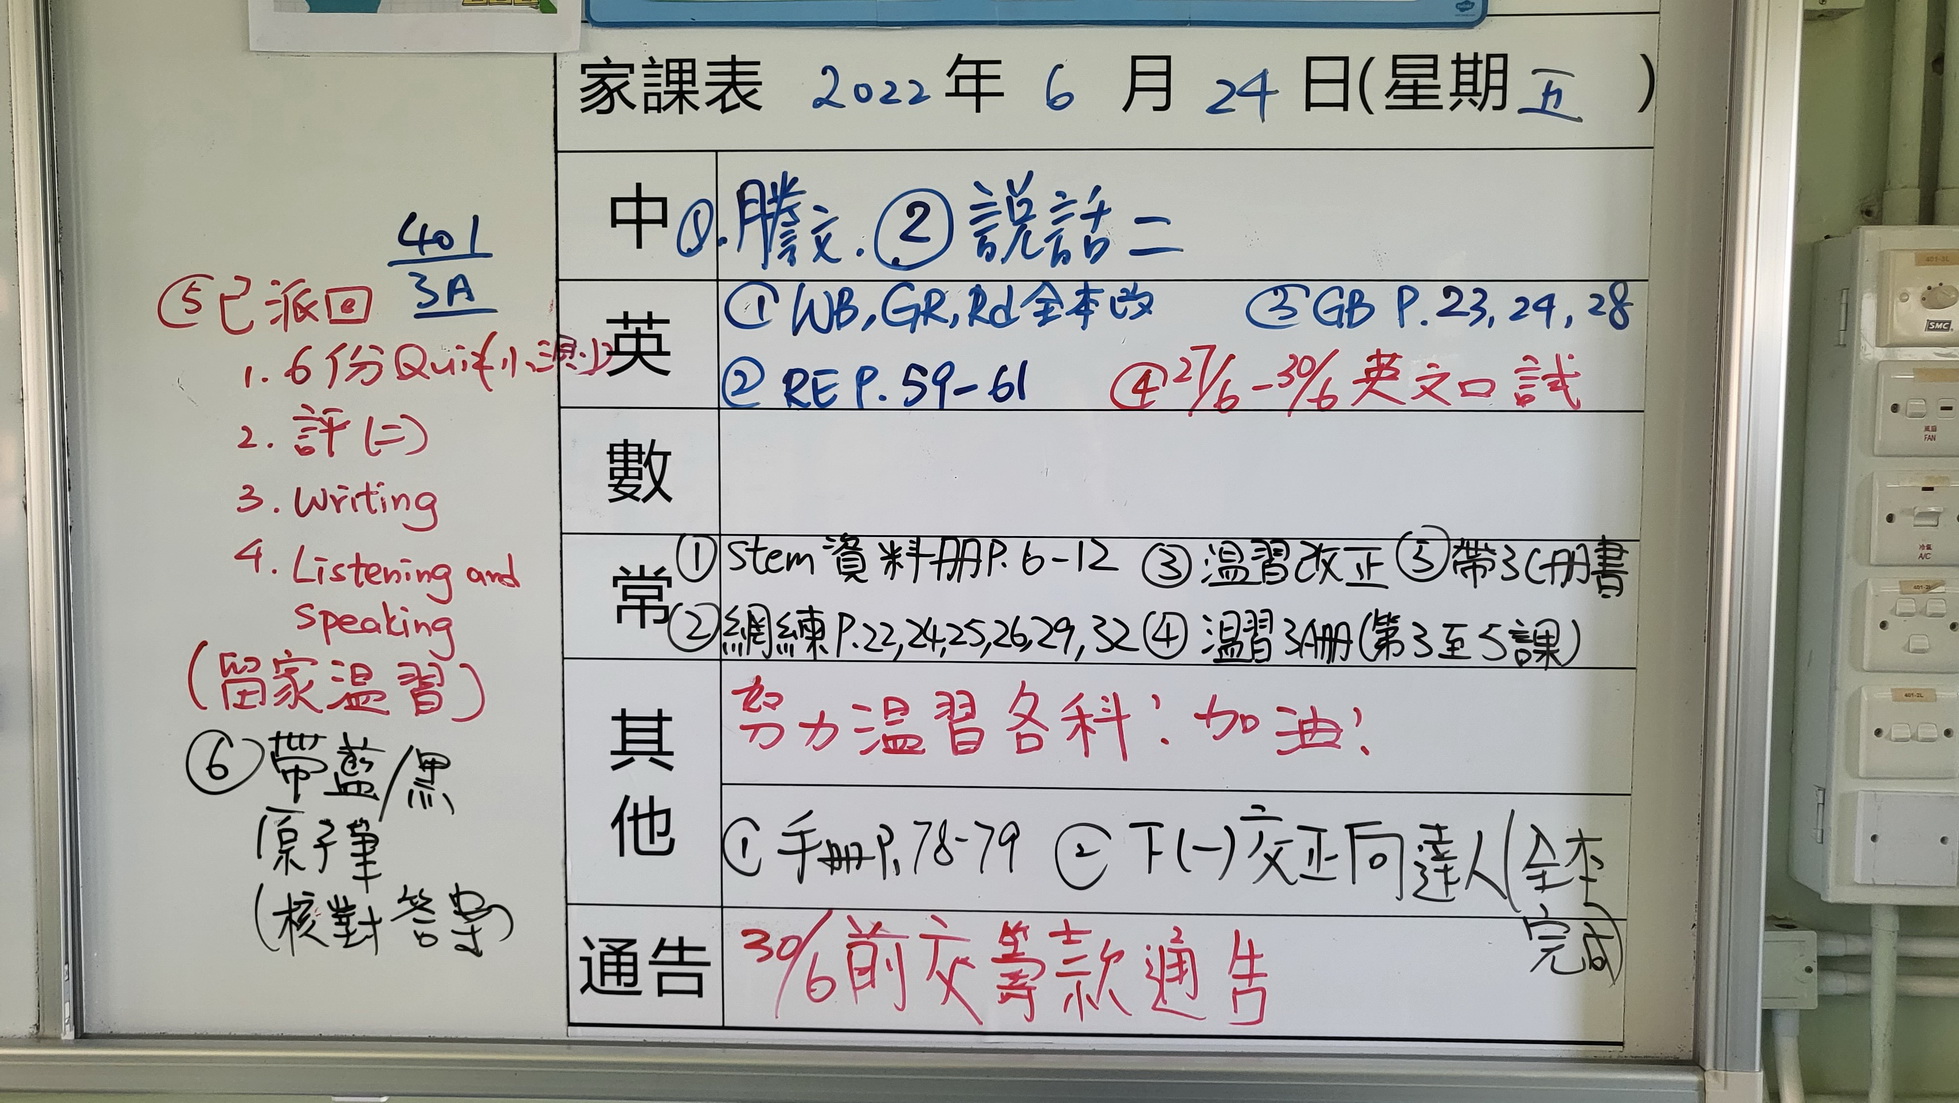 家課表 2022年 6 月 24 日(星期五)
中 ①.謄文.②說話二
英 ① WB, GR, Rd全本改 ③ GB P.23, 24, 28
② RE P.59-61 ④ 27/6-30/6 英文口試
數
常 ① Stem資料册P.6-12 ③ 温習改正 ⑤ 帶3C册書
② 網練P.22,24,25,26,29,32 ④ 温習3A册(第3至5課)
其他 努力温習各科! 加油!
① 手册P.78-79 ② 下(一)交正向達人(全本
完成)
通告 30/6前交籌款通告
401
3A
⑤已派回
1. 6份Quiz(小測)
2. 評(二)
3. Writing
4. Listening and
Speaking
(留家温習)
⑥帶藍/黑
原子筆
(核對答案)
SMC
風扇
FAN
冷氣
A/C